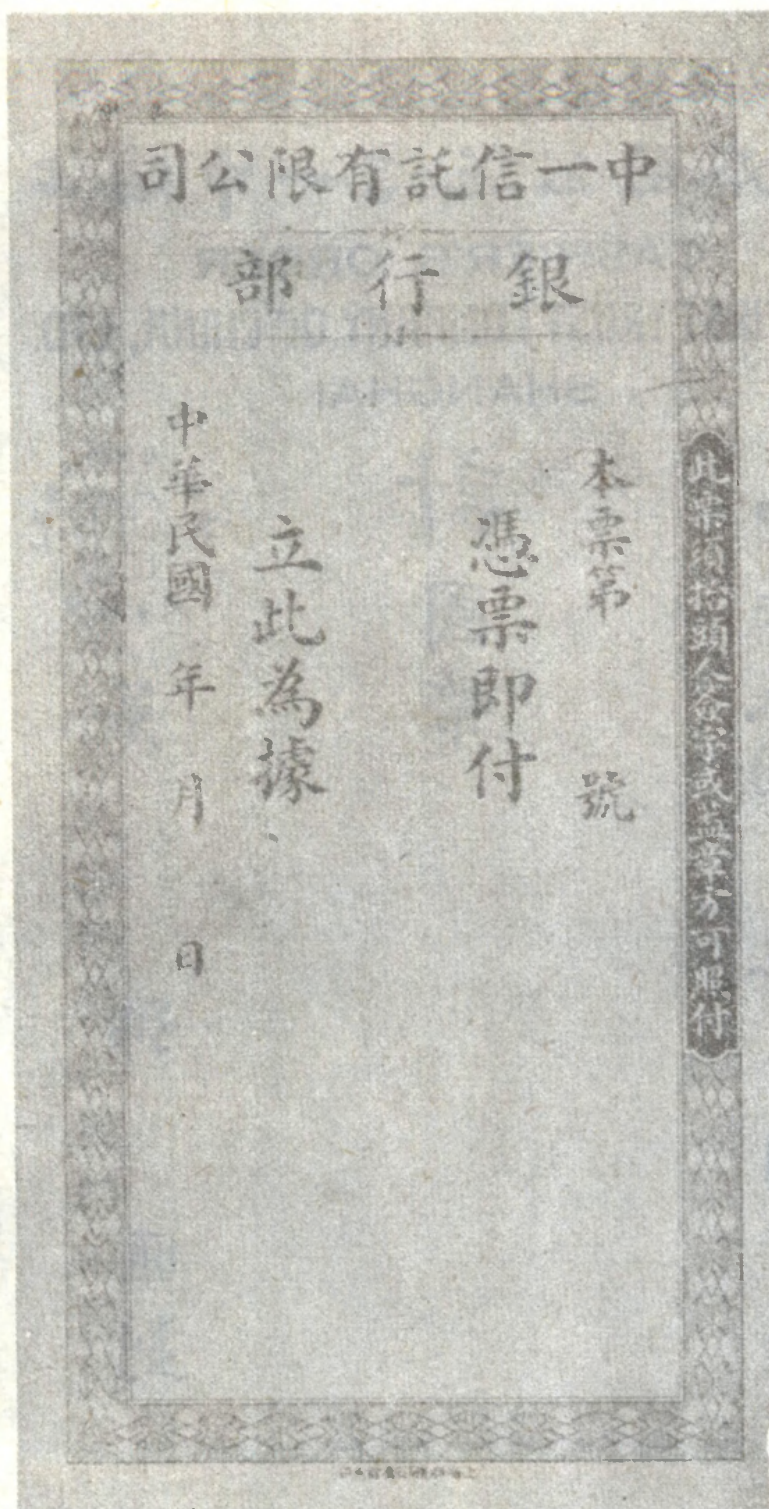 中一信託有限公司
銀行部
此票須抬頭人簽字或蓋章方可照付
本票第 號
憑票即付
立此為據
中華民國 年 月 日
SHANGHAI